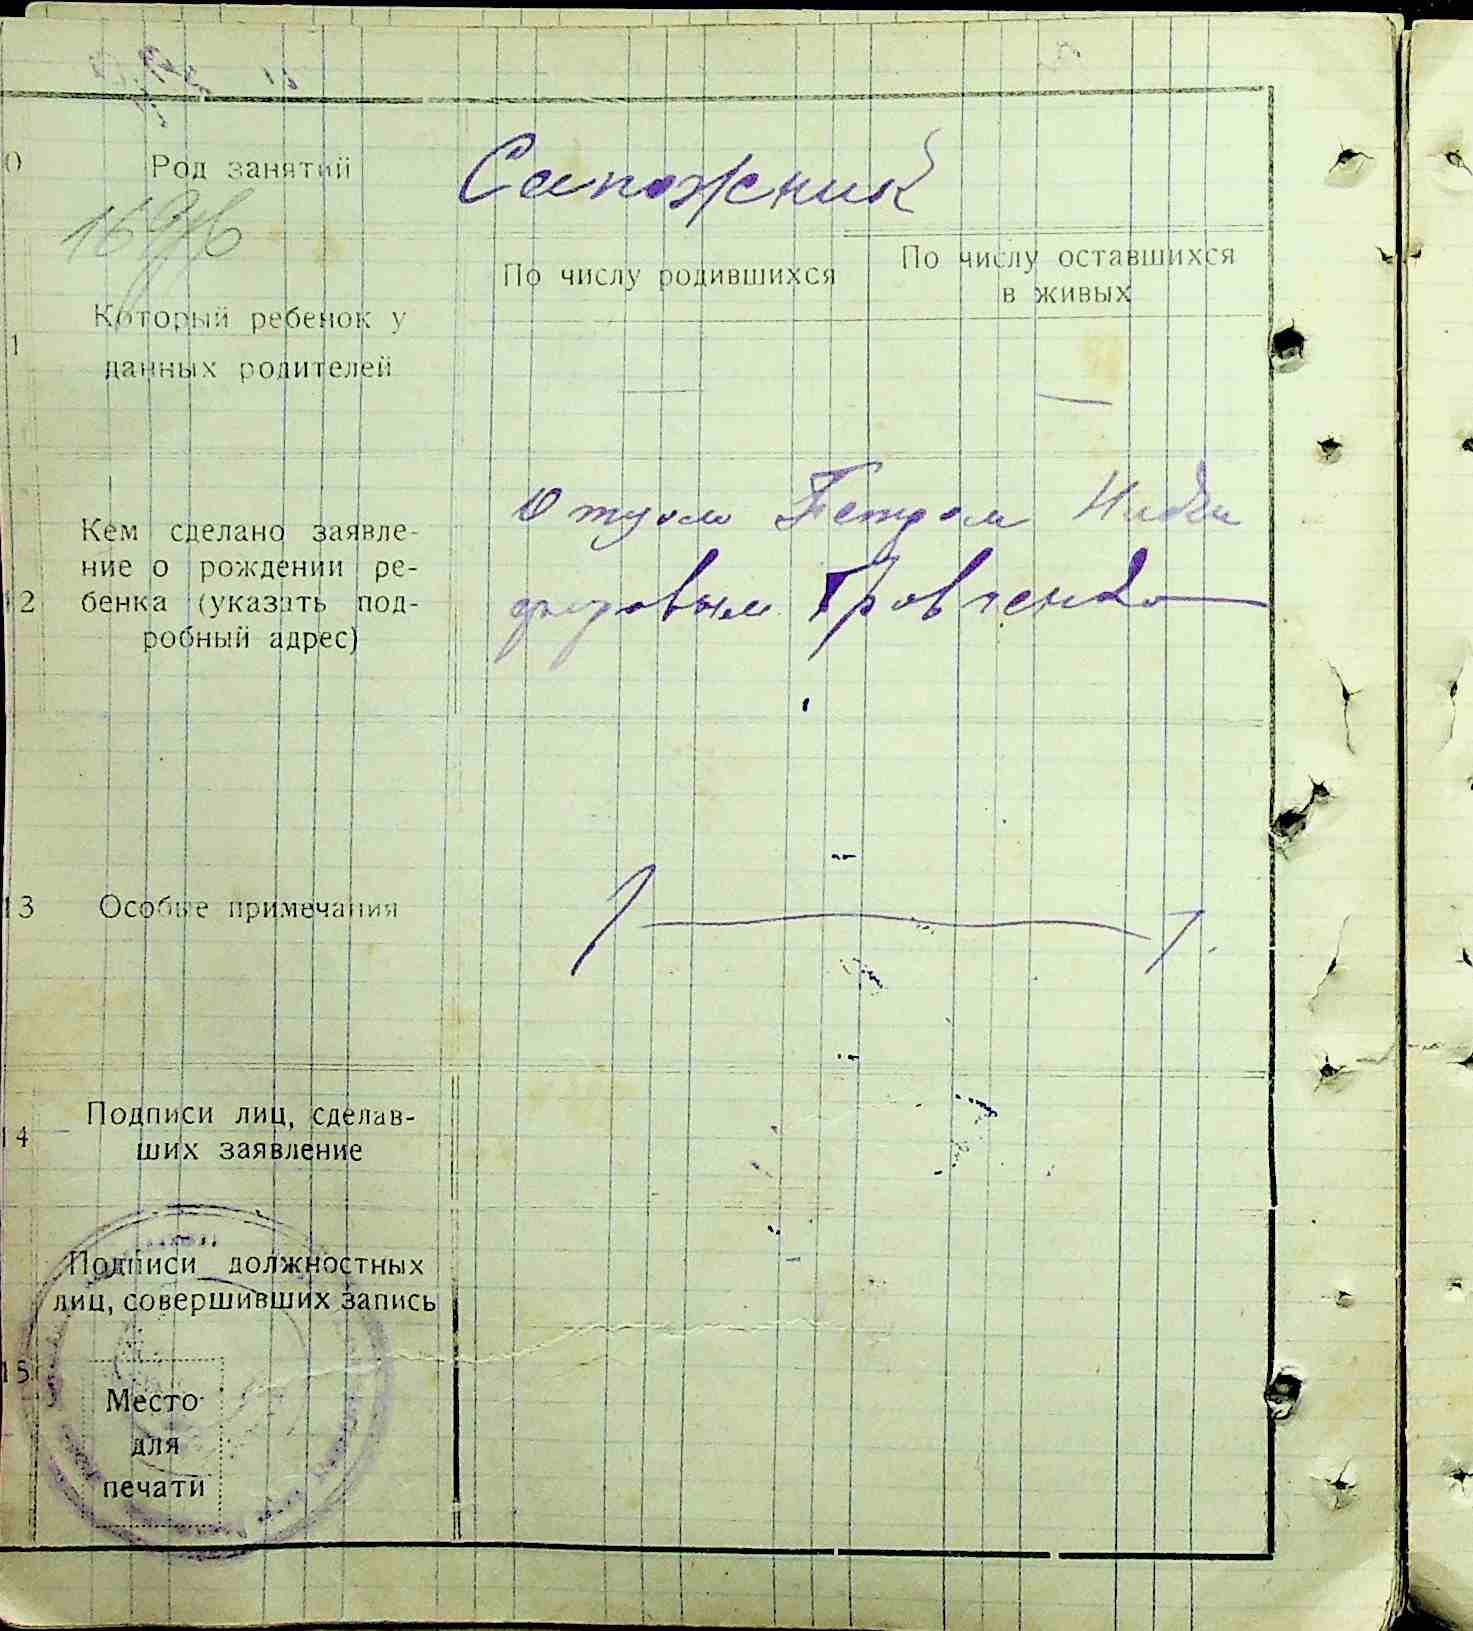 10 Род занятий Сапожник
По числу родившихся По числу оставшихся
в живых
11 Который ребенок у
данных родителей — —
Отцом Петром Ники
12 Кем сделано заявле-
ние о рождении ре-
бенка (указать под-
робный адрес)
форовым
13 Особые примечания
14 Подписи лиц, сделав-
ших заявление
Подписи должностных
лиц, совершивших запись
15
Место
для
печати